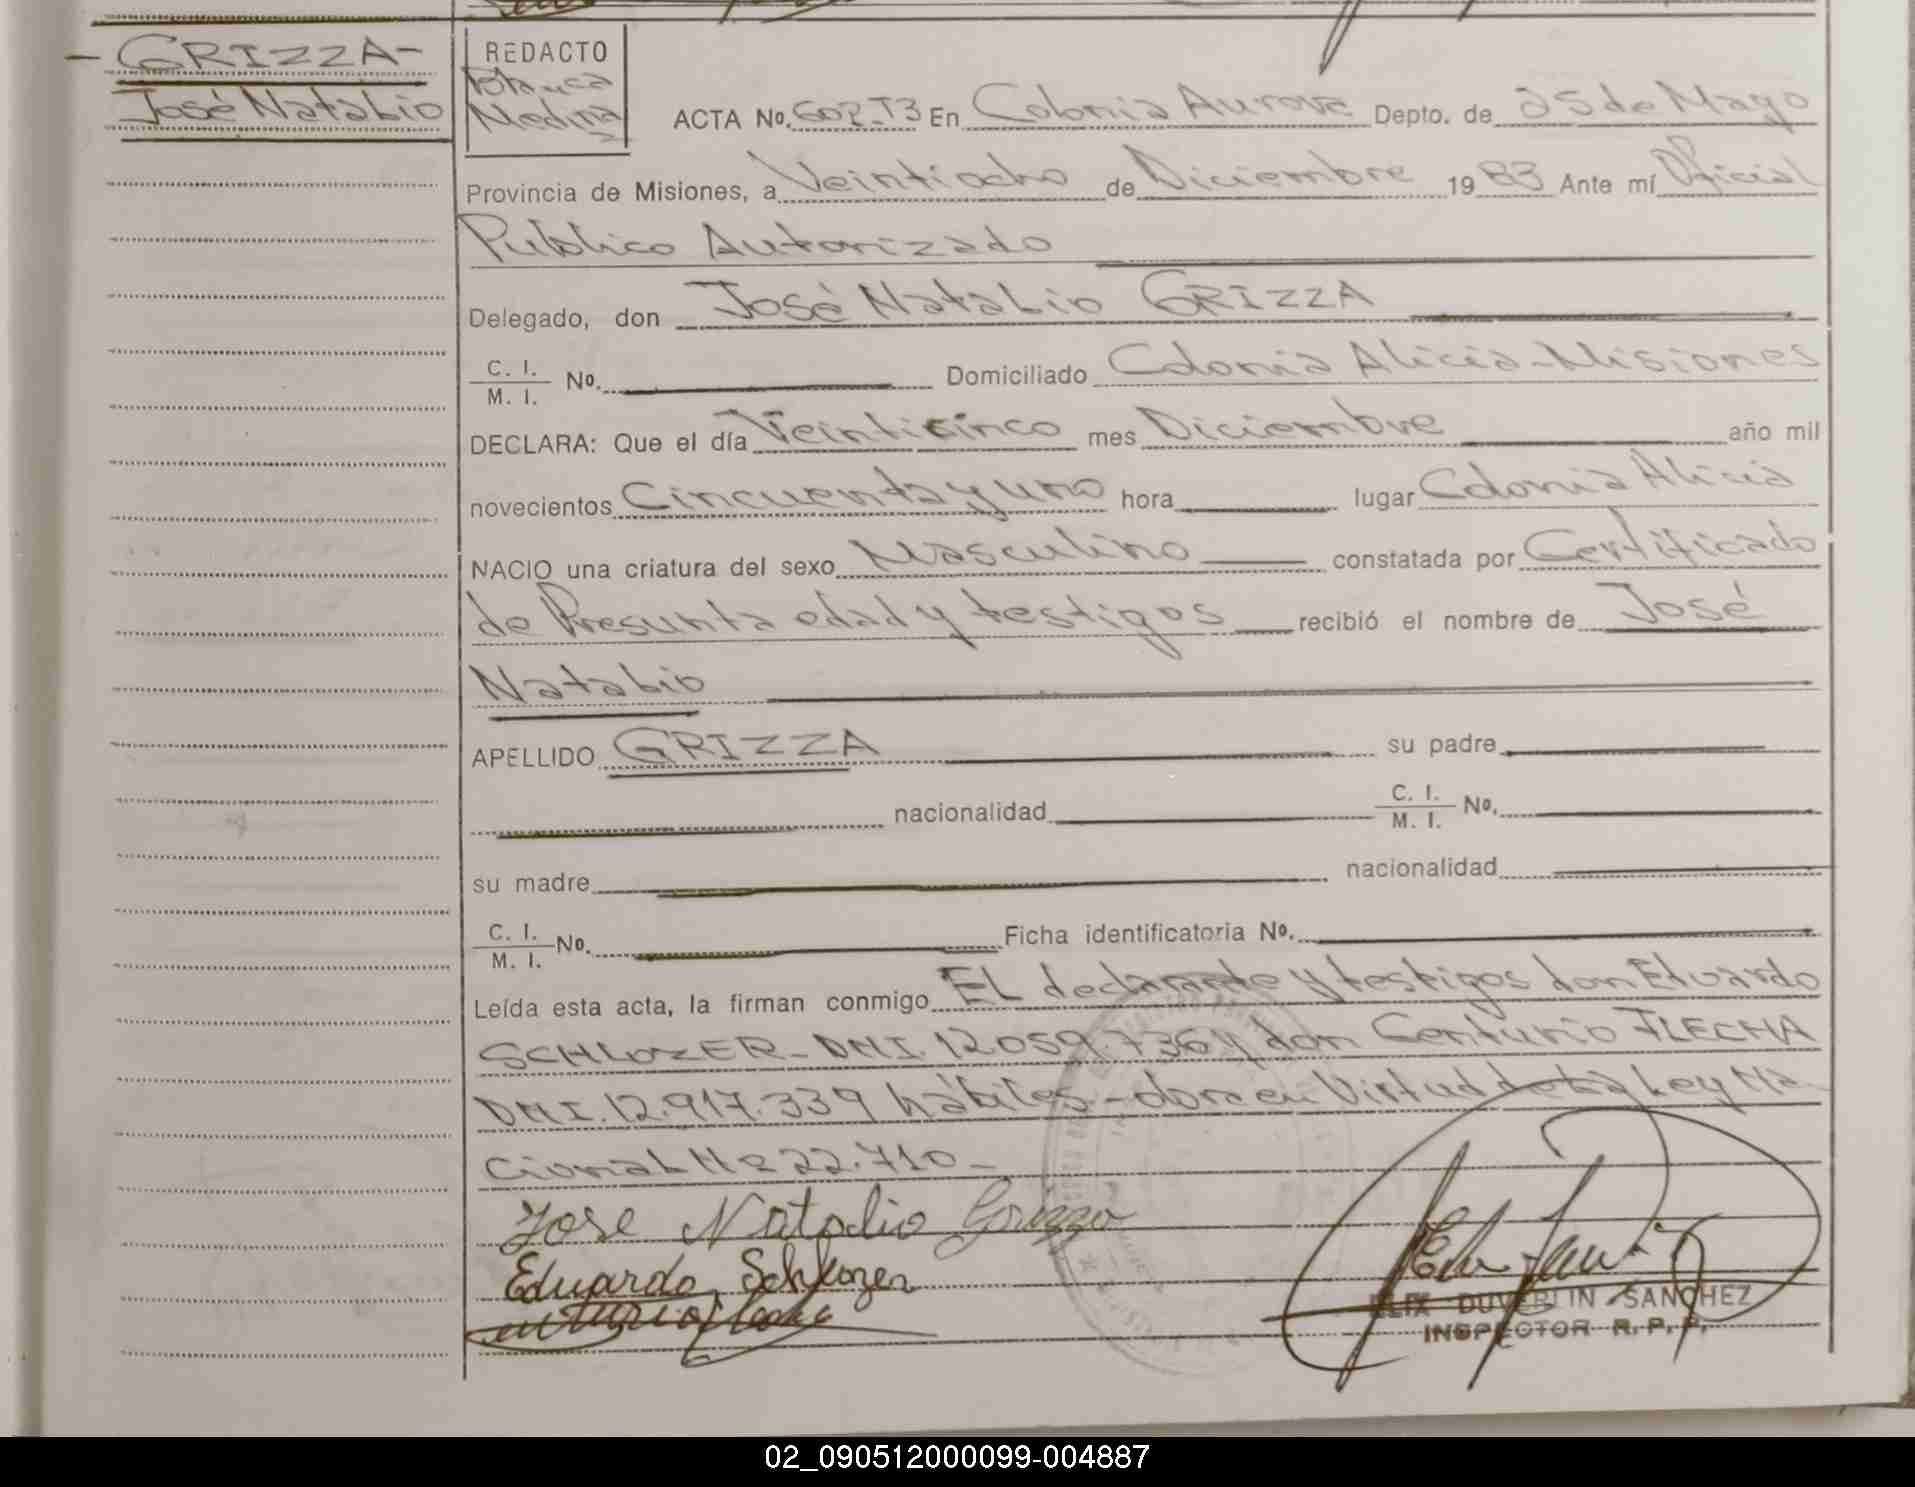 - GRIZZA -
José Natalio
REDACTO
Blanca
Medina
ACTA No. 602_T3 En Colonia Aurora Depto. de 25 de Mayo
Provincia de Misiones, a Veintiocho de Diciembre 1983 Ante mí Oficial
Publico Autorizado
Delegado, don José Natalio GRIZZA
C. I.
M. I. No. Domiciliado Colonia Alicia-Misiones
DECLARA: Que el día Veinticinco mes Diciembre año mil
novecientos Cincuenta y uno hora lugar Colonia Alicia
NACIO una criatura del sexo Masculino constatada por Certificado
de Presunta edad y testigos recibió el nombre de José
Natalio
APELLIDO GRIZZA su padre
nacionalidad C. I.
M. I. No.
su madre nacionalidad
C. I.
M. I. No. Ficha identificatoria No.
Leída esta acta, la firman conmigo EL declarante y testigos don Eduardo
SCHLOZER_DMI.12.059.736 y don Centurio FLECHA
DMI.12.917.339 hábiles - en Virtud de La Ley Na
cional Nº 22.710_
Jose Natalio Grizza
Eduardo Schlozer
ELIX DUVERLIN SANCHEZ
INSPECTOR R. P. P.
02_090512000099-004887